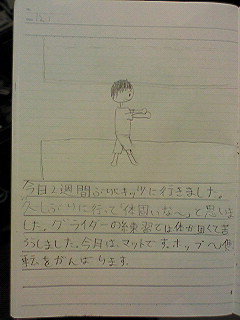 今日2週間ぶりにキッツに行きました。
久しぶりに行って「体固いな〜」と思いま
した。グライダーの練習では体が固くて苦
ろうしました。今月は、マットです。ホップ側
転をがんばります。